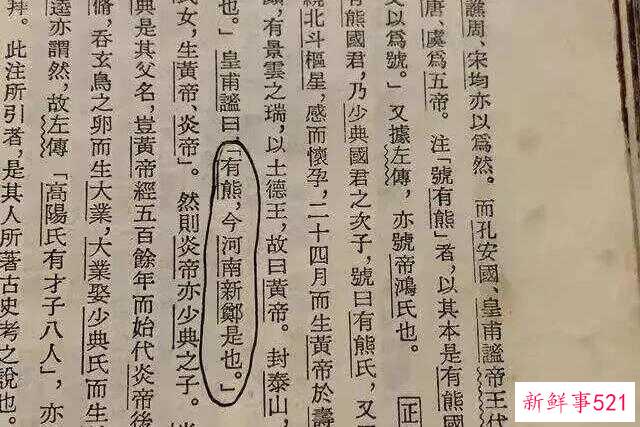 譙周、宋均亦以爲然。而孔安國、皇甫謐帝王代
唐、虞爲五帝。注「號有熊」者，以其本是有熊國
又以爲號。」又據左傳，亦號帝鴻氏也。 正
有熊國君，乃少典國君之次子，號曰有熊氏，又
繞北斗樞星，感而懷孕，二十四月而生黃帝於壽
有景雲之瑞，以土德王，故曰黃帝。封泰山，
也。」皇甫謐曰：「有熊，今河南新鄭是也。」
氏女，生黃帝、炎帝」。然則炎帝亦少典之子。
典是其父名，豈黃帝經五百餘年而始代炎帝後
脩，吞玄鳥之卵而生大業，大業娶少典氏而生
逵亦謂然，故左傳「高陽氏有才子八人」，亦
此注所引者，是其人所著古史考之說也。
新鲜事521